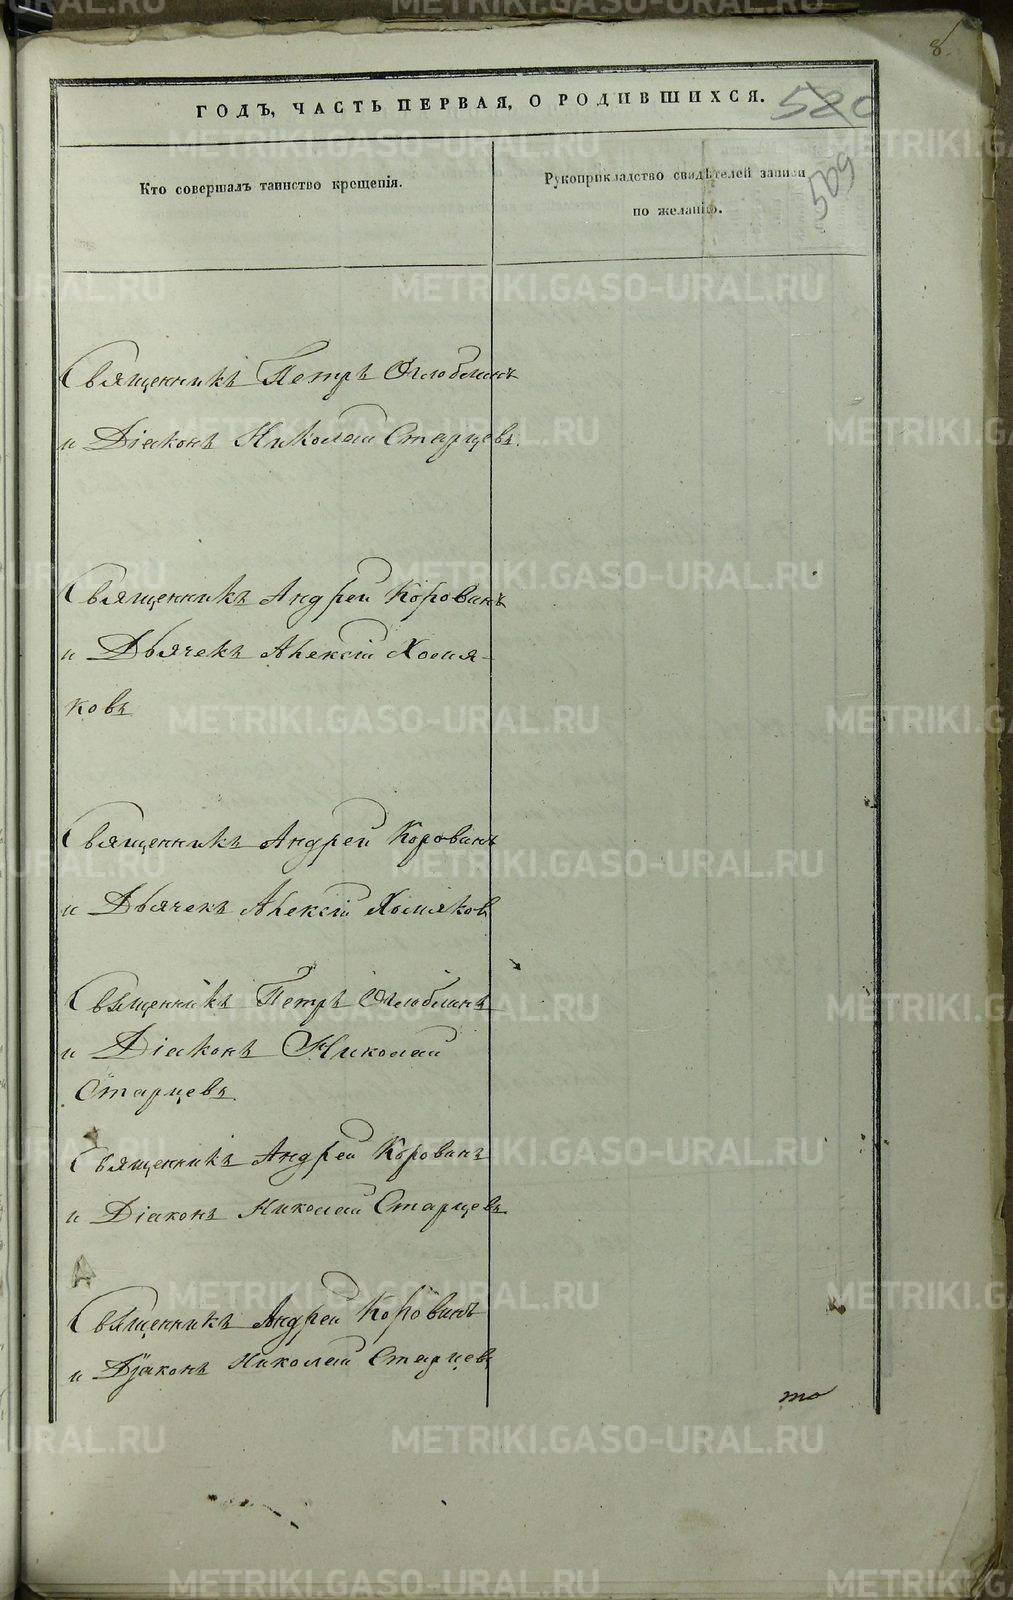 8.
ГОДЪ, ЧАСТЬ ПЕРВАЯ, О РОДИВШИХСЯ.
580
509
Кто совершалъ таинство крещенія.
Рукоприкладство свидѣтелей записи
по желанію.
Священникъ Петръ Оглоблинъ
и Діаконъ Николай Старцевъ.
Священникъ Андрей Коровинъ
и Дьячекъ Алексій Хомя-
ковъ
Священникъ Андрей Коровинъ
и Дьячекъ Алексій Хомяков
Священникъ Петръ Оглоблинъ
и Діаконъ Николай
Старцевъ.
Священникъ Андрей Коровинъ
и Діаконъ Николай Старцевъ.
Священникъ Андрей Коровинъ
и Діаконъ Николай Старцевъ
то
METRIKI.GASO-URAL.RU